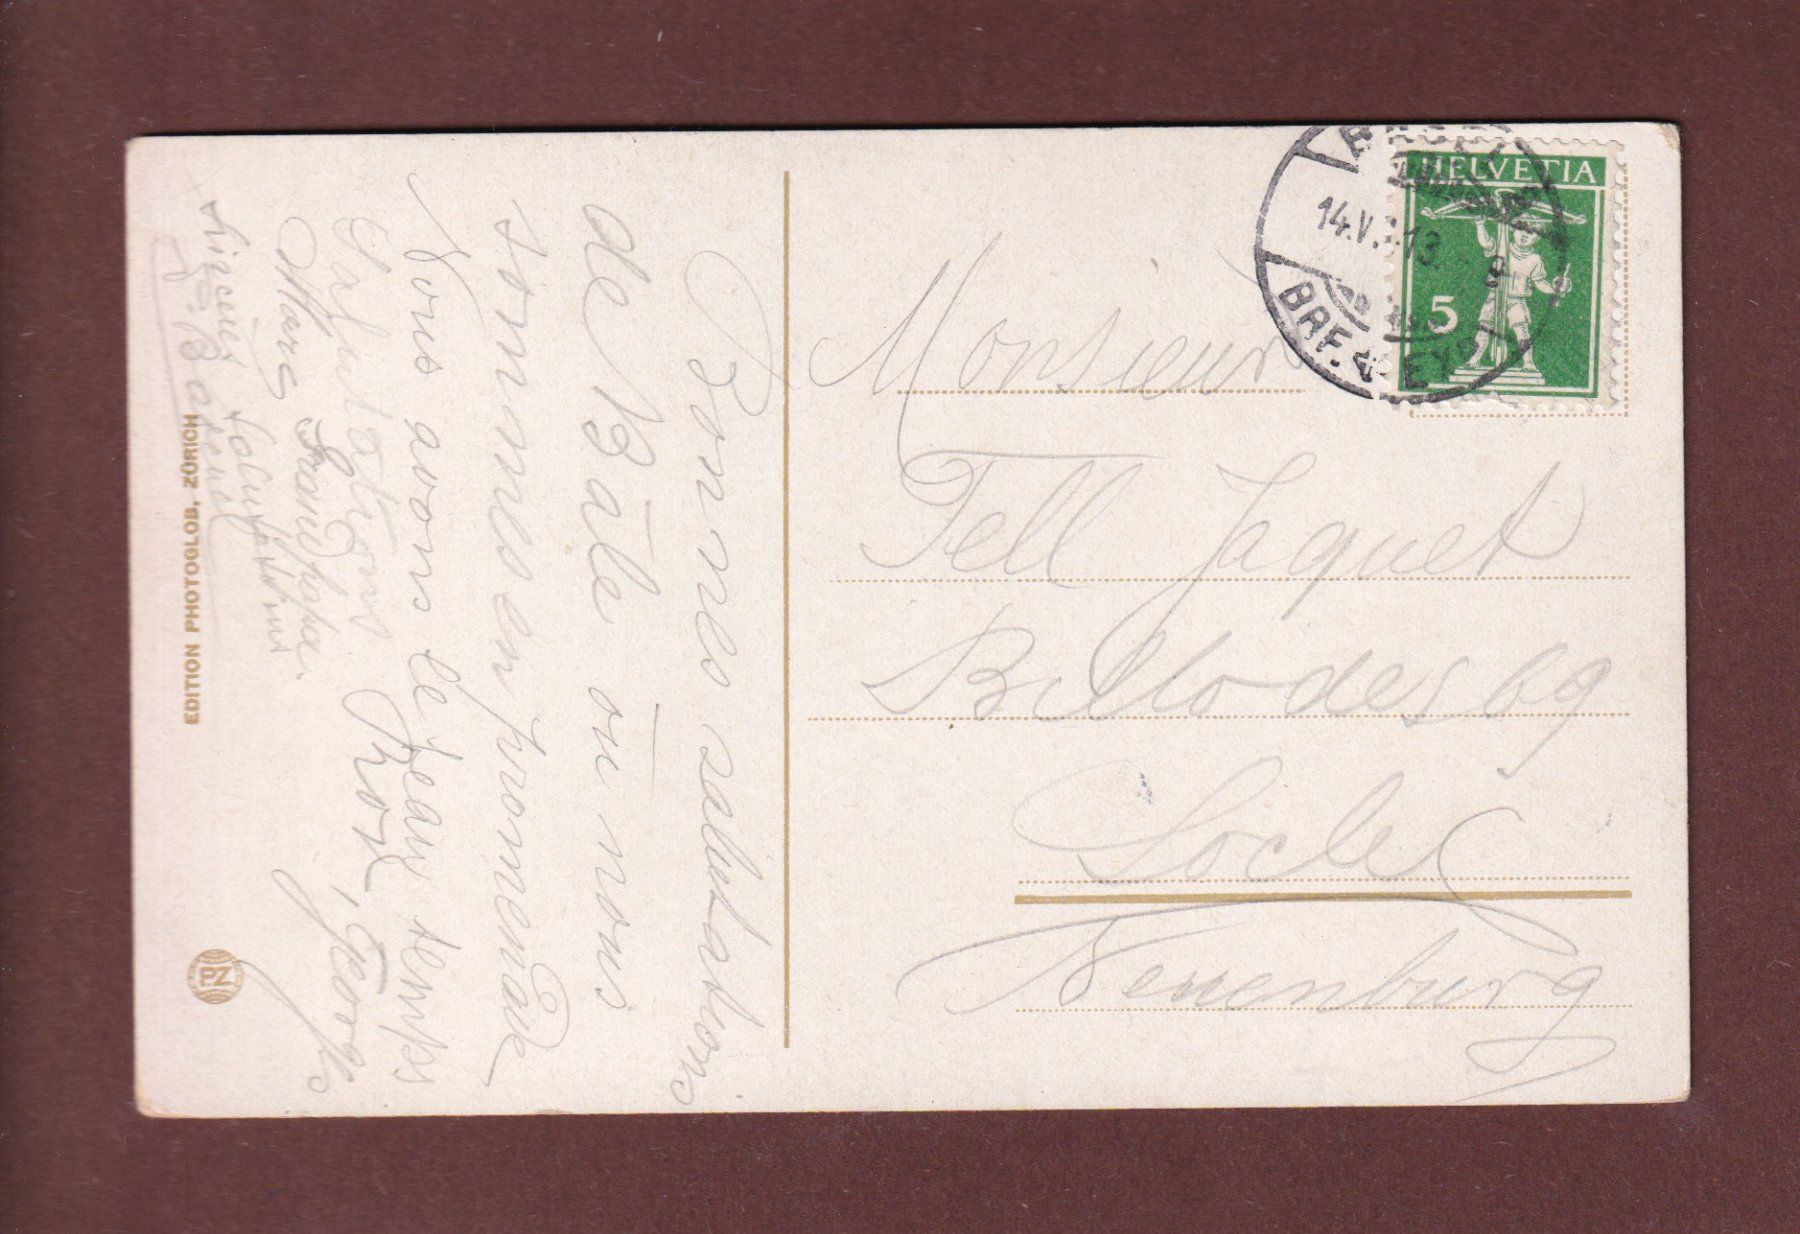 Bonnes salutations
de Bâle ou nous
sommes en promenade
Nous avons le beau temps
Salutations
Grand papa.
Georges
EDITION PHOTOGLOB, ZÜRICH
PZ
HELVETIA
5
14.V.
13
BRF.
Monsieur
Tell Jaquet
Billodes 69
Locle
Neuenburg